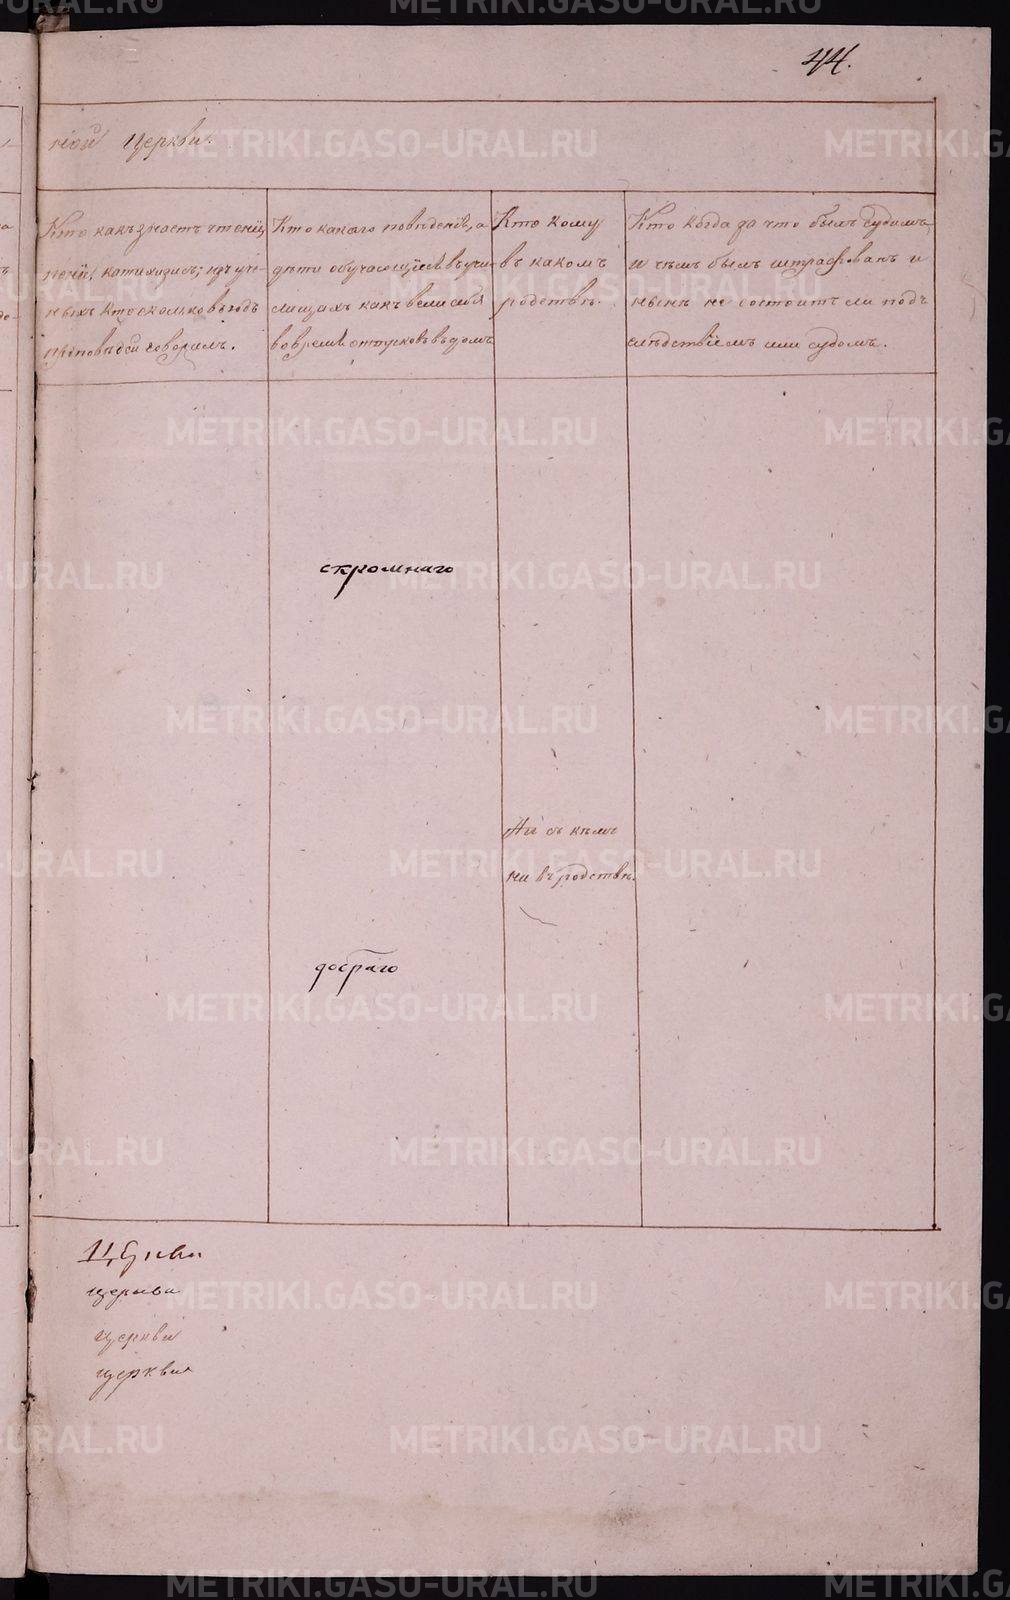 44.
ской Церкви.
Кто какъ знаетъ чтеніе,
пеніе, катихизисъ; изъ уче-
ныхъ кто сколько въ годъ
проповѣдей говорилъ.
Кто какаго поведенія, а
дѣти обучающіеся въ учи-
лищахъ какъ вели себя
вовремя отпусковъ въ домъ
Кто кому
въ какомъ
родствѣ.
Кто когда за что былъ судимъ,
и чѣмъ былъ штрафованъ и
нынѣ не состоитъ ли подъ
слѣдствіемъ или судомъ.
скромнаго
Ни съ кѣмъ
ни въ родствѣ.
добраго
церкви
церкви
церкви
METRIKI.GASO-URAL.RU